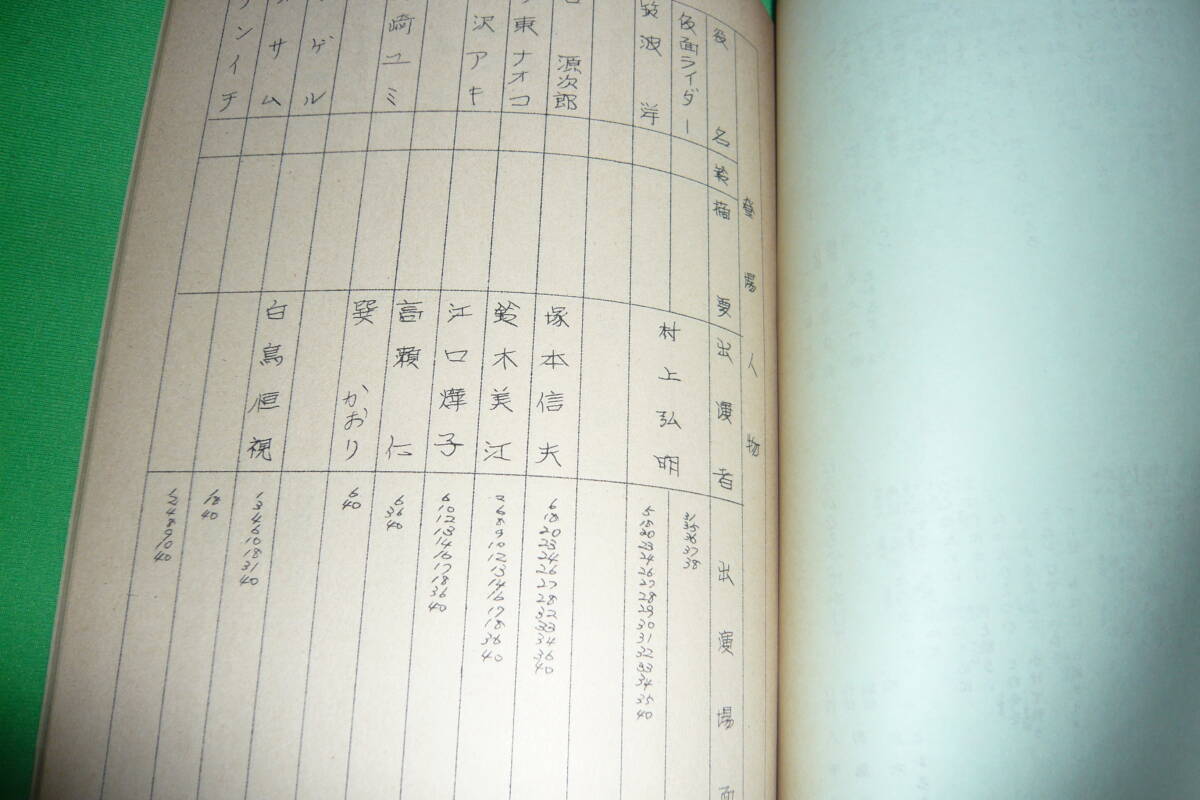 登場人物
役名 摘要 出演者 出演場面
仮面ライダー 31 35 36 37 38
筑波洋 村上弘明 5 18 20 23 24 26 27 28 29 30 31 32 33 34 35 40
源次郎 塚本信夫 6 18 20 23 24 26 27 28 32 33 34 36 40
東ナオコ 鈴木美江 2 6 8 9 10 12 13 14 16 17 18 36 40
沢アキ 江口燁子 6 10 12 13 14 16 17 18 36 40
高瀬仁 6 36 40
崎ユミ 巽かおり 6 40
ゲル
サム 白鳥恒視 1 3 4 6 10 18 31 40
ンイチ 18 40
1 2 4 8 9 10 40